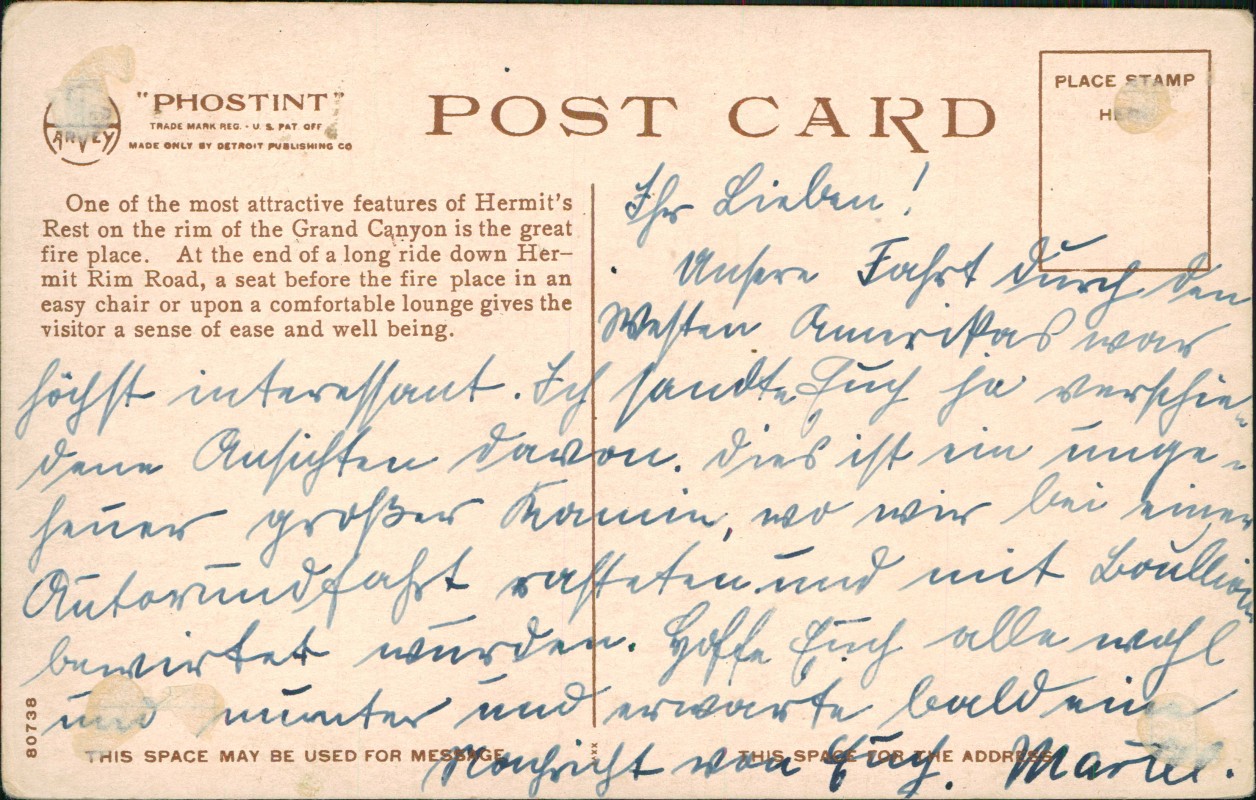 "PHOSTINT"
TRADE MARK REG. - U. S. PAT OFF
MADE ONLY BY DETROIT PUBLISHING CO
ARVEY
POST CARD
PLACE STAMP
HERE
One of the most attractive features of Hermit's
Rest on the rim of the Grand Canyon is the great
fire place. At the end of a long ride down Her-
mit Rim Road, a seat before the fire place in an
easy chair or upon a comfortable lounge gives the
visitor a sense of ease and well being.
Ihr Lieben!
Unsere Fahrt durch den
Westen Amerikas war
höchst interessant. Ich sandte Euch ja verschie-
dene Ansichten davon. Dies ist ein unge-
heuer großer Kamin, wo wir bei einer
Autorundfahrt rasteten und mit Boullion
bewirtet wurden. Hoffe Euch alle wohl
und munter und erwarte bald eine
Nachricht von Euch.
80738
THIS SPACE MAY BE USED FOR MESSAGE
xxx
THIS SPACE FOR THE ADDRESS